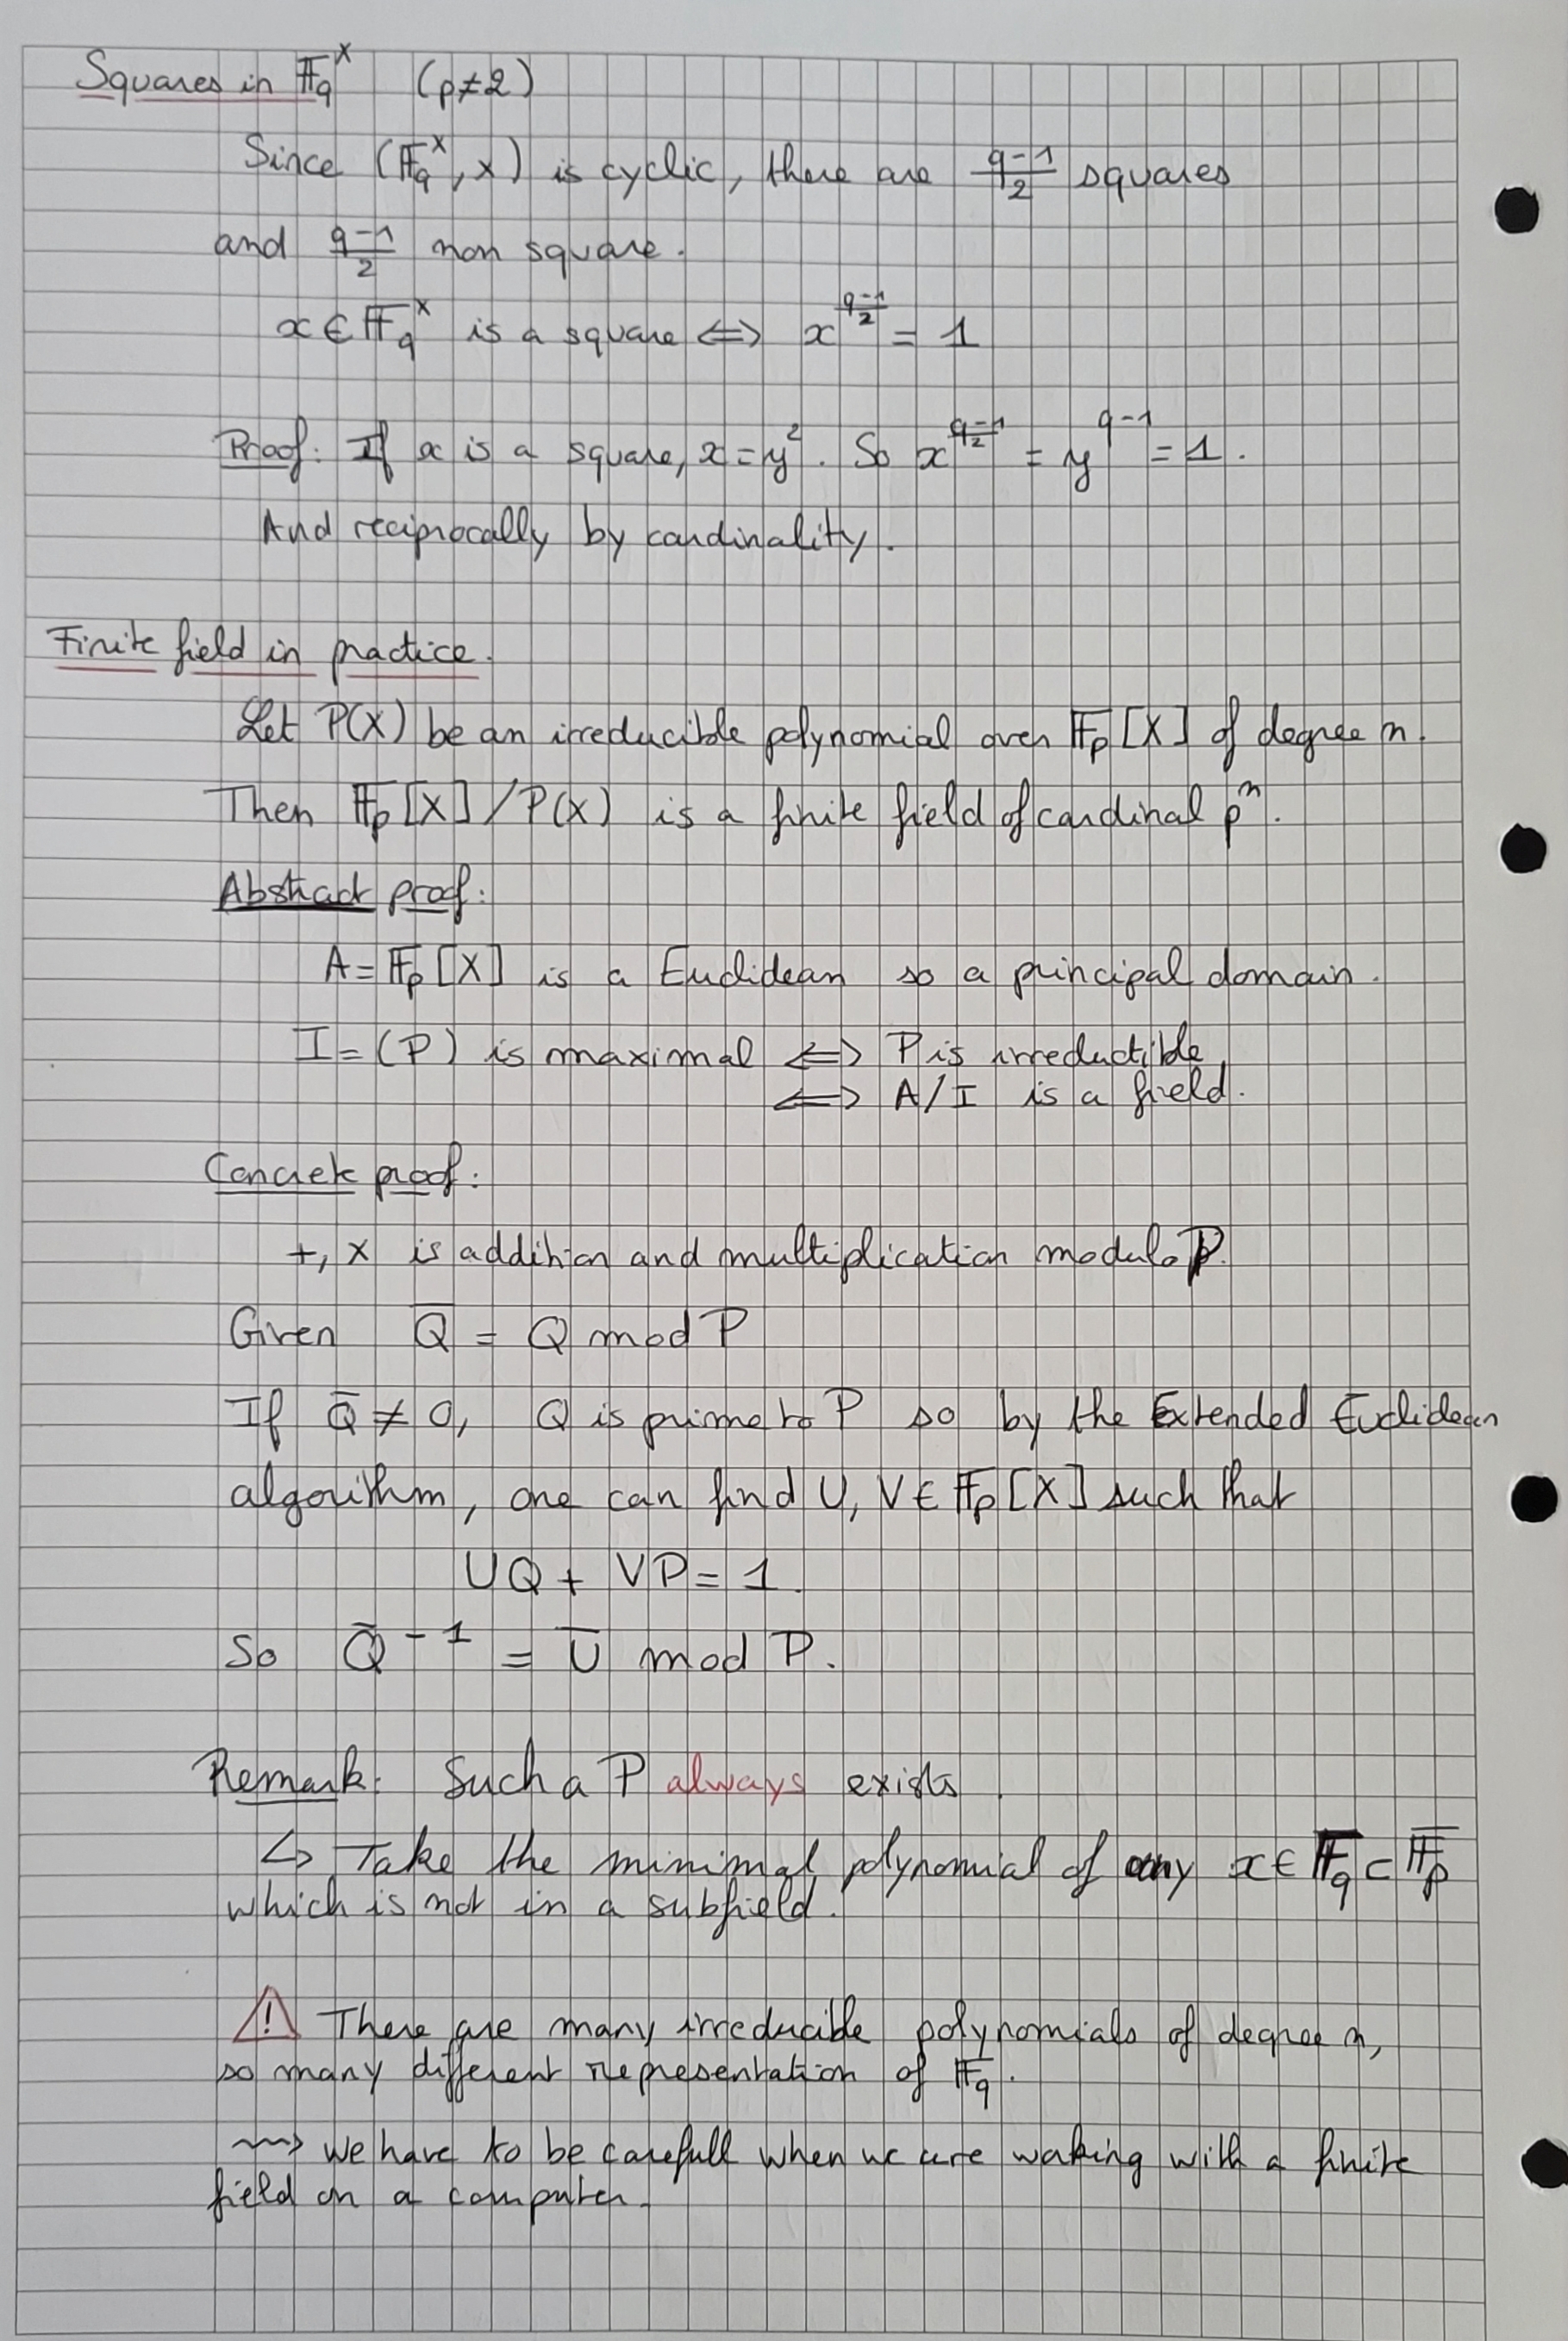 Squares in 𝔽q^× (p≠2)
Since (𝔽q^×, ×) is cyclic, there are (q-1)/2 squares
and (q-1)/2 non square.
x ∈ 𝔽q^× is a square ⟺ x^((q-1)/2) = 1
Proof: If x is a square, x = y². So x^((q-1)/2) = y^(q-1) = 1.
And reciprocally by cardinality.
Finite field in practice.
Let P(X) be an irreducible polynomial over 𝔽p[X] of degree n.
Then 𝔽p[X]/P(X) is a finite field of cardinal p^n.
Abstract proof:
A = 𝔽p[X] is a Euclidean so a principal domain.
I = (P) is maximal ⟺ P is irreductible
⟺ A/I is a field.
Concrete proof:
+, × is addition and multiplication modulo P.
Given Q̄ = Q mod P
If Q̄ ≠ 0, Q is prime to P so by the Extended Euclidean
algorithm, one can find U, V ∈ 𝔽p[X] such that
UQ + VP = 1.
So Q̄^-1 = Ū mod P.
Remark: Such a P always exists.
↳ Take the minimal polynomial of any x ∈ 𝔽q ⊂ 𝔽̄p
which is not in a subfield.
⚠ There are many irreducible polynomials of degree n,
so many different representation of 𝔽q.
⇝ we have to be carefull when we are working with a finite
field on a computer.